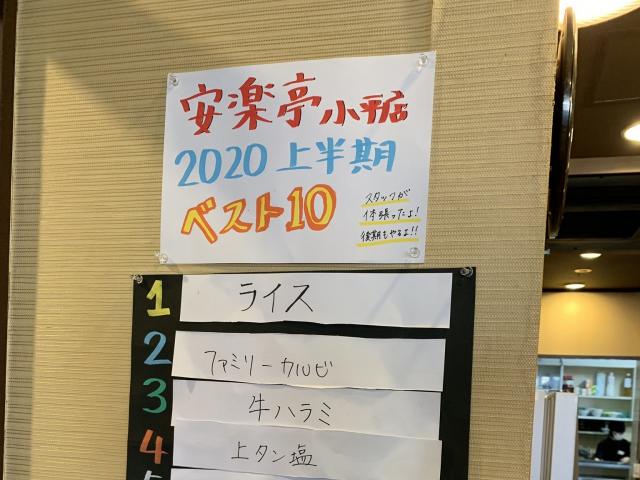 安楽亭小平店
2020上半期
ベスト10
スタッフが
体張ったよ!
後期もやるよ!!
1 ライス
2 ファミリーカルビ
3 牛ハラミ
4 上タン塩
5